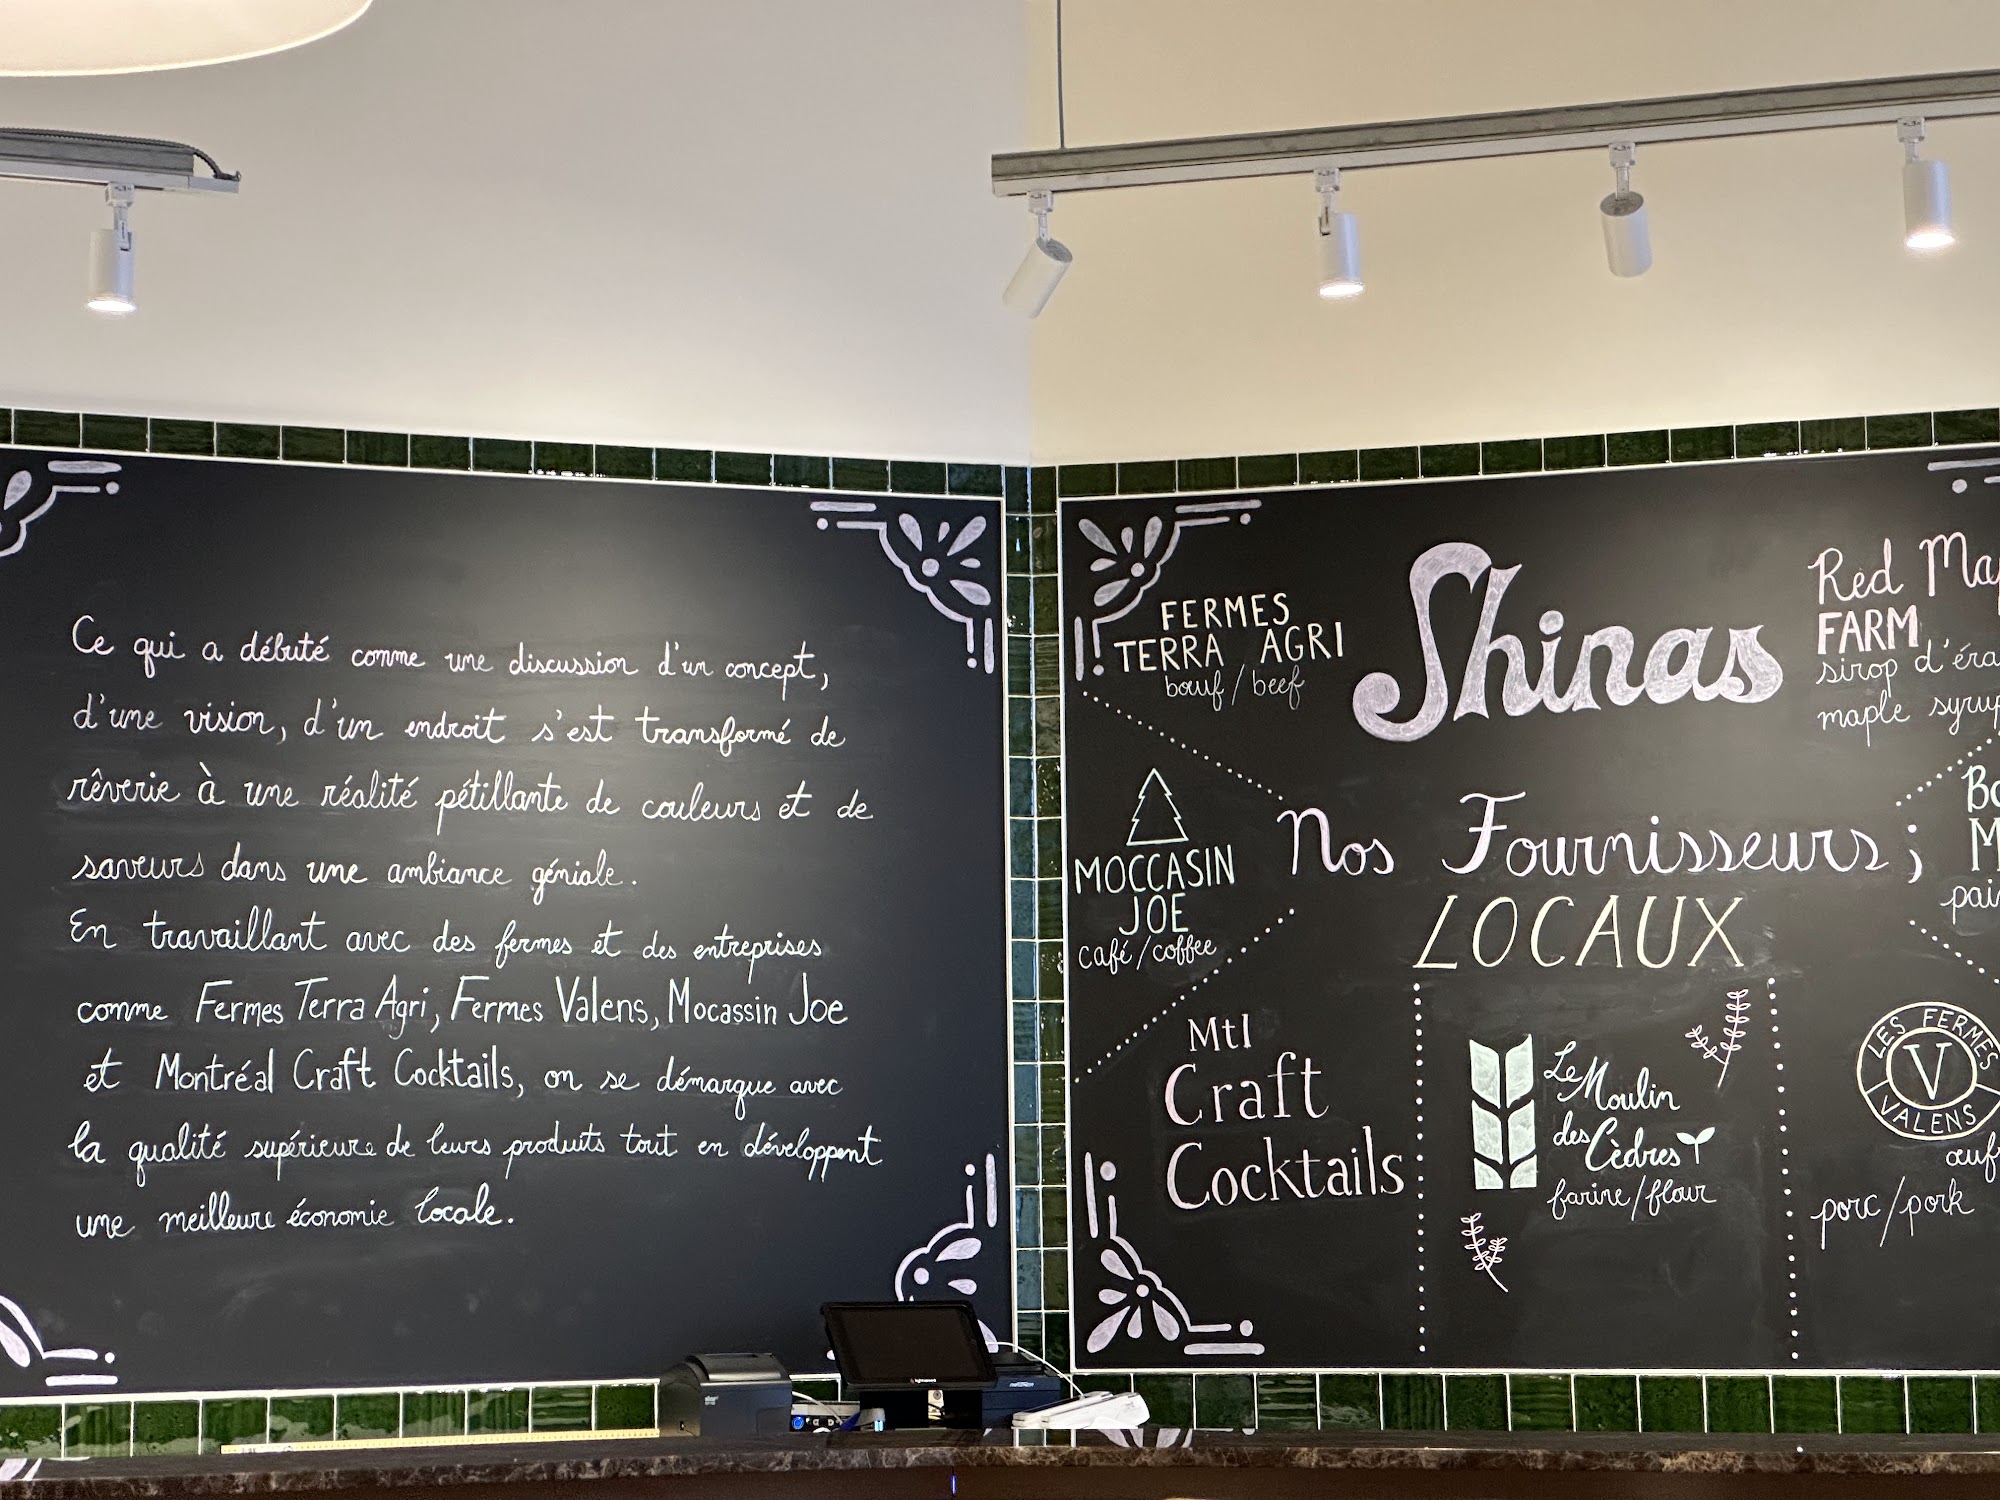 Ce qui a débuté comme une discussion d'un concept,
d'une vision, d'un endroit s'est transformé de
rêverie à une réalité pétillante de couleurs et de
saveurs dans une ambiance géniale.
En travaillant avec des fermes et des entreprises
comme Fermes Terra Agri, Fermes Valens, Mocassin Joe
et Montréal Craft Cocktails, on se démarque avec
la qualité supérieure de leurs produits tout en développent
une meilleure économie locale.
Shinas
Nos Fournisseurs ;
LOCAUX
FERMES
TERRA AGRI
bœuf / beef
MOCCASIN
JOE
café / coffee
Mtl
Craft
Cocktails
Le Moulin
des Cèdres
farine / flour
Red
FARM
sirop
maple
LES FERMES
V
VALENS
porc / pork